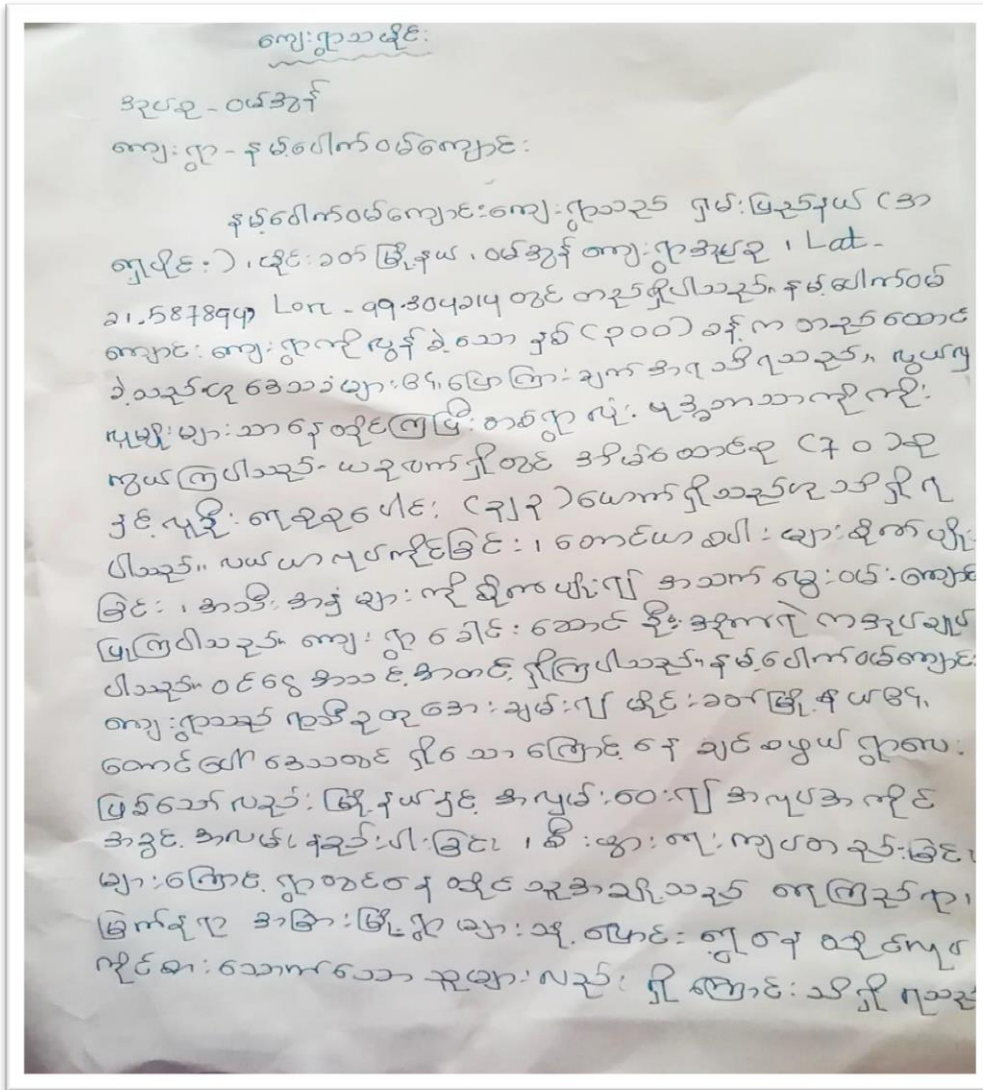 ကျေးရွာသမိုင်း
အုပ်စု - ဝမ်အွန်
ကျေးရွာ - နမ့်ပေါက်ဝမ်ကျောင်း
နမ့်ပေါက်ဝမ်ကျောင်းကျေးရွာသည် ရှမ်းပြည်နယ် (အ
ရှေ့ပိုင်း) ၊ မိုင်းခတ်မြို့နယ် ၊ ဝမ်အွန် ကျေးရွာအုပ်စု ၊ Lat -
21.587894, Lon - 99.304214 တွင် တည်ရှိပါသည်။ နမ့်ပေါက်ဝမ်
ကျောင်းကျေးရွာကိုလွန်ခဲ့သော နှစ် (၃၀၀) ခန့်က တည်ထောင်
ခဲ့သည်ဟု ဒေသခံများ၏ ပြောကြားချက်အရ သိရသည်။ လွယ်လ
လူမျိုးများသာ နေထိုင်ကြပြီး တစ်ရွာလုံး ဗုဒ္ဓဘာသာကို ကိုး
ကွယ်ကြပါသည်။ ယခုလက်ရှိတွင် အိမ်ထောင်စု (၇၀) စု
နှင့် လူဦးရေစုစုပေါင်း (၃၂၃) ယောက်ရှိသည်ဟု သိရှိရ
ပါသည်။ လယ်ယာလုပ်ကိုင်ခြင်း ၊ တောင်ယာစပါးများစိုက်ပျိုး
ခြင်း ၊ အသီးအနှံများကို စိုက်ပျိုး၍ အသက်မွေးဝမ်းကျောင်း
ပြုကြပါသည်။ ကျေးရွာခေါင်းဆောင် ဦး က အုပ်ချုပ်
ပါသည်။ ဝင်ငွေ အသင့်အတင့် ရှိကြပါသည်။ နမ့်ပေါက်ဝမ်ကျောင်း
ကျေးရွာသည် ရာသီဥတု အေးချမ်း၍ မိုင်းခတ်မြို့နယ်၏
တောင်ပေါ်ဒေသတွင် ရှိသောကြောင့် နေချင်စဖွယ် ရွာလေး
ဖြစ်သော်လည်း မြို့နယ်နှင့် အလှမ်းဝေး၍ အလုပ်အကိုင်
အခွင့်အလမ်း နည်းပါးခြင်း ၊ စီးပွားရေး ကျပ်တည်းခြင်း
များကြောင့် ရွာတွင်နေထိုင်သူအချို့သည် ရေကြည်ရာ၊
မြက်နုရာ အခြားမြို့ရွာများသို့ ပြောင်းရွှေ့နေထိုင်လုပ်
ကိုင်စားသောက်သော သူများလည်း ရှိကြောင်း သိရှိရသည်